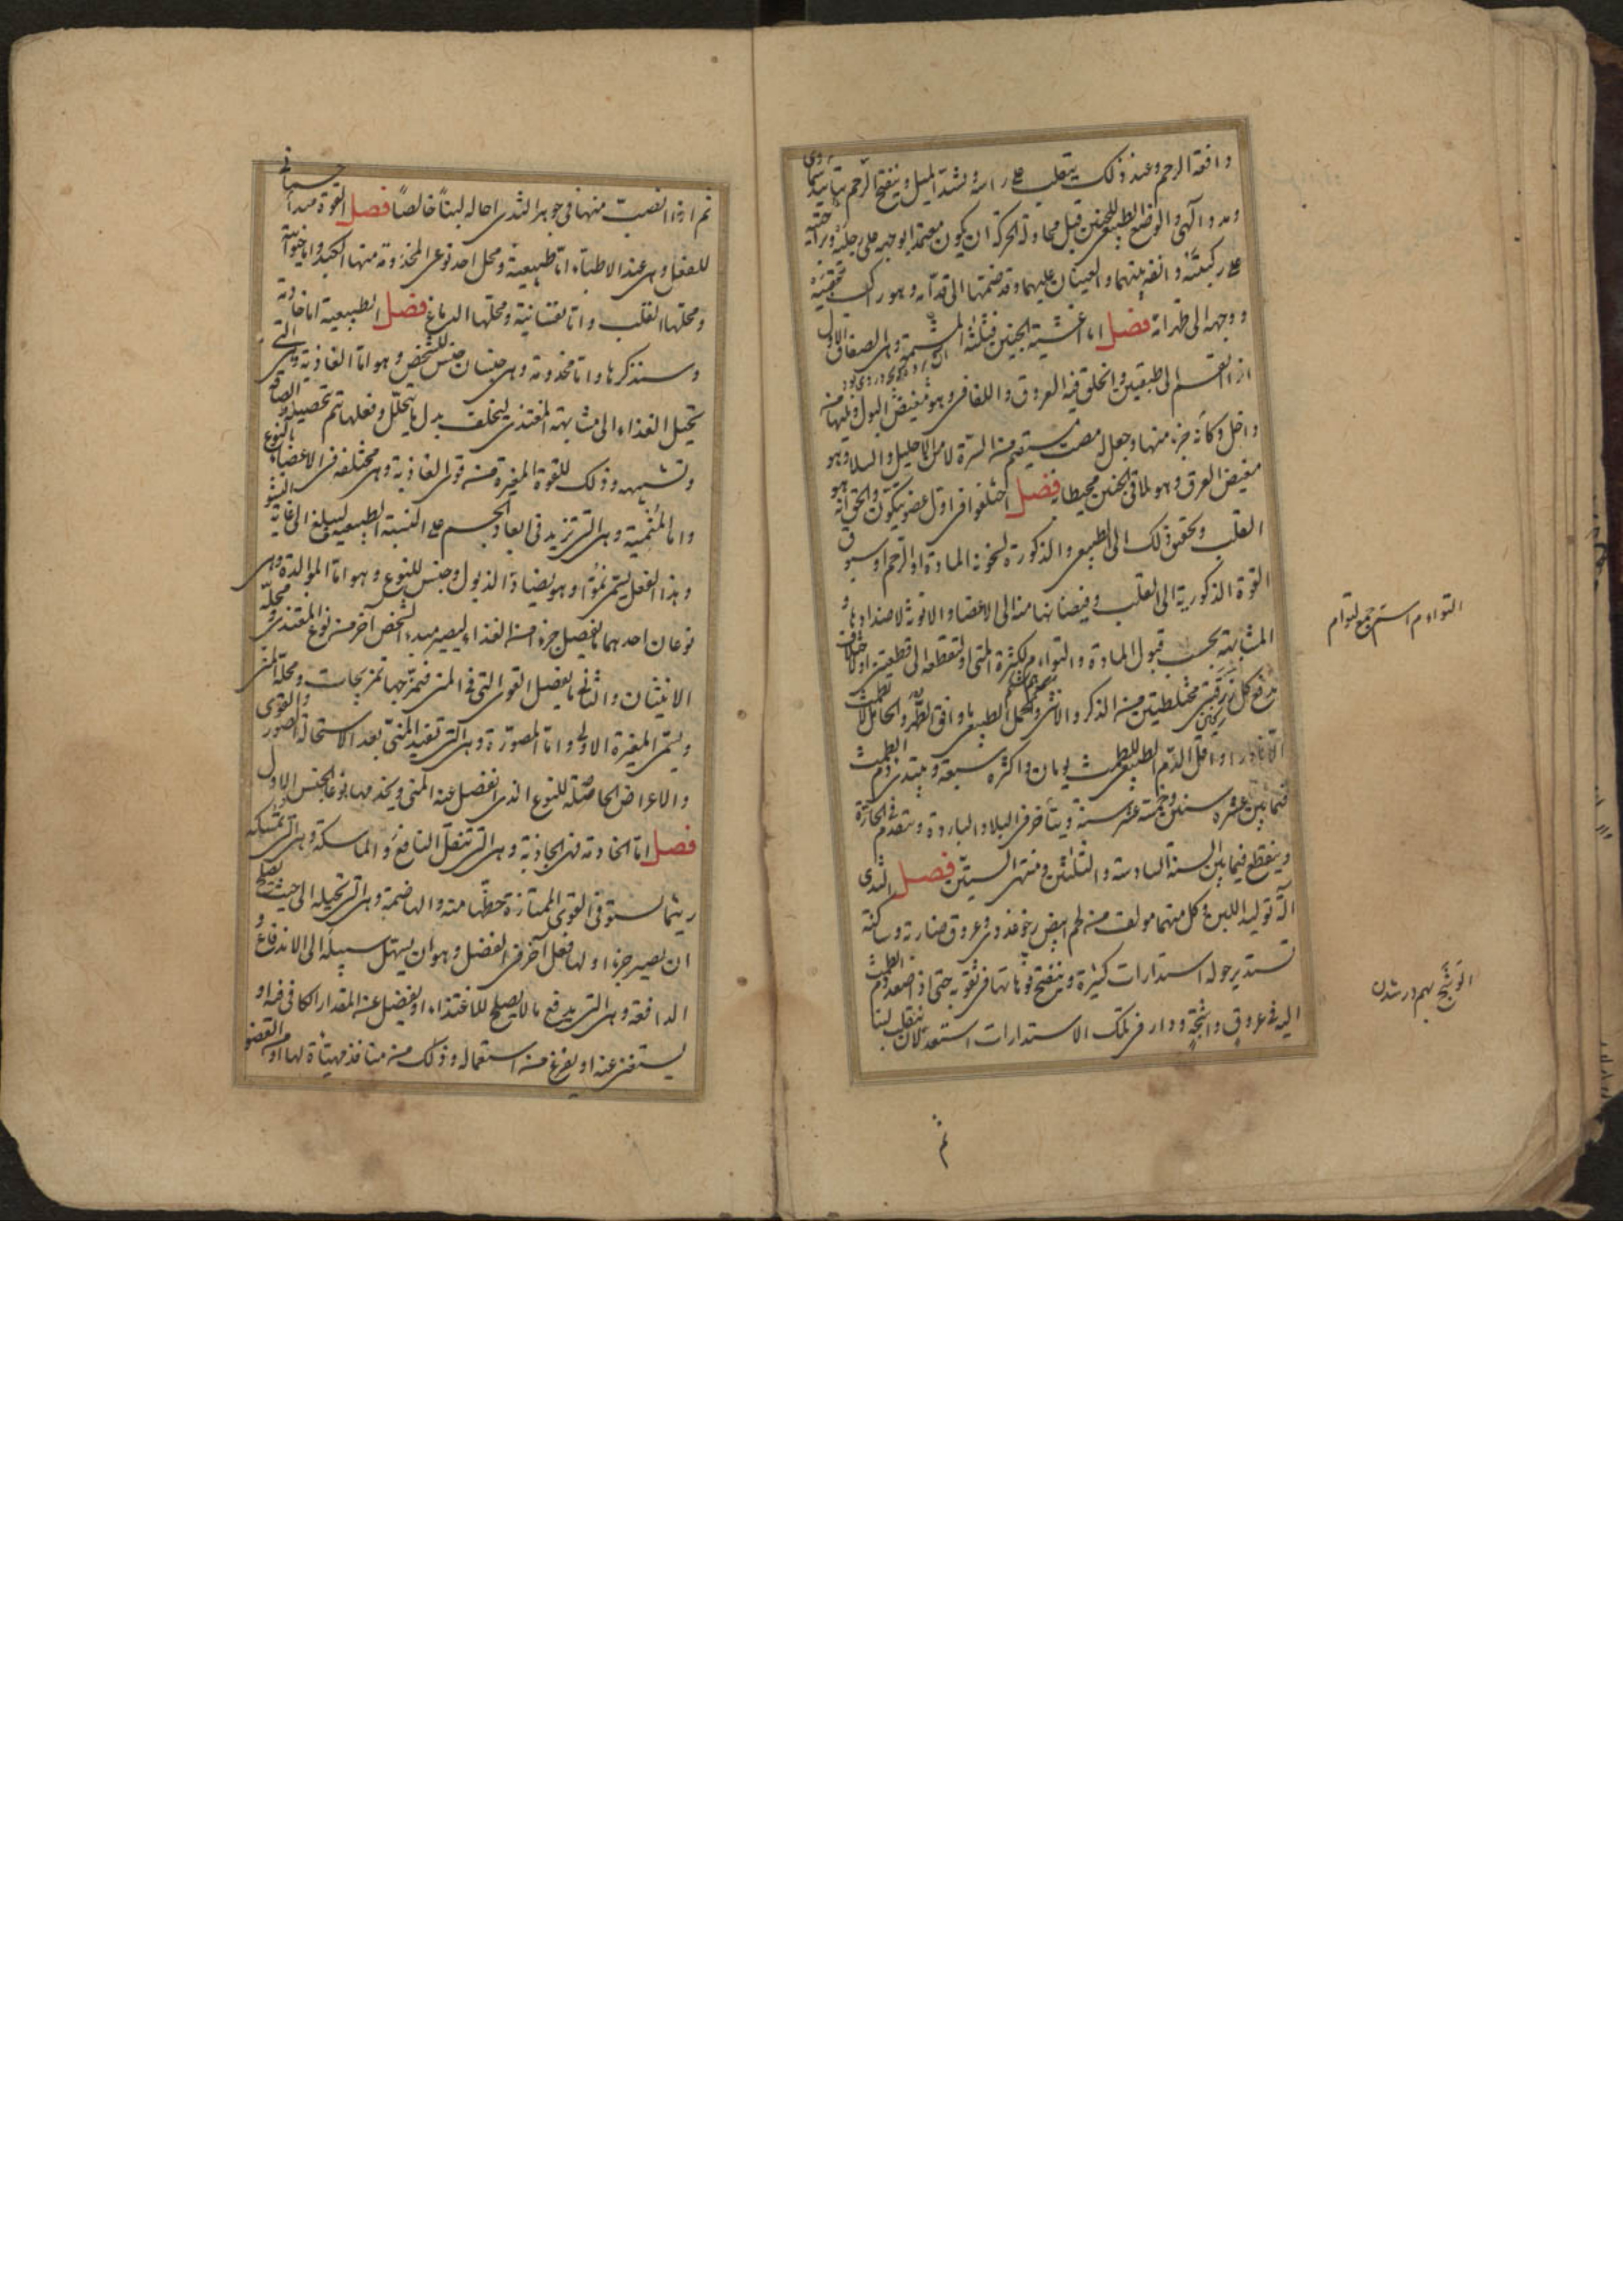 دافعة الرحم وعند ذلك ينقلب على راسه لشدة الميل وينفتح الرحم بتاييد سماوى
ومدد الهى والوضع الطبيعى للجنين قبل محاولة الحركة ان يكون معتمدا بوجهه على رجليه وبراحتيه
على ركبتيه وانفه بينهما والعينان عليهما وقد ضمهما الى قدامه وهو راكب عقبيه
ووجهه الى ظهر امه فصل اما اغشية الجنين فثلثة المشيمة وهى الصفاق الاول
اذا انقسم الى طبقتين وانخلق فيه العروق واللفافى وهو مغيض البول ويليها من
داخل وكانه جزء منها وجعل له مصب مستقيم من السرة لا من الاحليل والسلا وهو
مغيض العرق وهو يلاقى الجنين محيطا به فصل اختلفوا فى اول عضو يتكون والحق انه هو
القلب وتحقيق ذلك الى الطبيعى والذكورة لسخونة المادة او الرحم او سبوق
القوة الذكورية الى القلب وفيضانها منه الى الاعضاء والانوثة لاضدادها و
المشابهة بحسب قبول المادة والتواءم لكثرة المنى او لتقطعه الى قطعتين او لاختلاف
مدفع كل زرقتين مختلطتين من الذكر والانثى والحمل الطبيعى ما وافق الطهر والحامل لا تطمث
الا نادرا واقل الدم الطبيعى للطمث يومان واكثره سبعة ويبتدئ دم الطمث
فيما بين عشرة سنين وخمسة عشر سنة ويتاخر فى البلاد الباردة ويتقدم فى الحارة
وينقطع فيما بين السنة السادسة والثلثين ومنتهى الستين فصل الثدى
الة توليد اللبن وكل منهما مولف من لحم ابيض رخو غددى وعروق ضاربة وساكنة
تستدير حوله استدارات كثيرة وينفتح فوهاتها فى ثقوبه حتى اذا صعد دم الطمث
اليه فى عروق واشجة ودار فى تلك الاستدارات استعد لان ينقلب لبنا
ثم
التواءم اسم جمع لتوام
التوشج بهم در شدن
ثم اذا انصبت منها فى جوهر الثدى احاله لبنا خالصا فصل القوة مبدأ جسمانى
للفعل وهى عند الاطباء اما طبيعية ومحل احد نوعى المخدومة منها الكبد واما حيوانية
ومحلها القلب واما نفسانية ومحلها الدماغ فصل الطبيعية اما خادمة
وسنذكرها واما مخدومة وهى جنسان جنس للشخص وهو اما الغاذية وهى التى
تحيل الغذاء الى مشابهة المغتذى ليخلف بدل ما يتحلل وفعلها يتم بتحصيله والصاقه
وتشبيهه وذلك للقوة المغيرة من قوى الغاذية وهى مختلفة فى الاعضاء بالنوع
واما المنمية وهى التى تزيد فى ابعاد الجسم على النسبة الطبيعية ليبلغ الى غاية النشو
وهذا الفعل يسمى نموا وهو يضاد الذبول وجنس للنوع وهو اما المولدة وهى
نوعان احدهما يفصل جزءا من الغذاء ليصير مبدء لشخص آخر من نوع المغتذى ومحله
الانثيان والثانى ما يفصل القوى التى فى المنى فيمزجها تمزيجات ومحله المنى
ويسمى المغيرة الاولى واما المصورة وهى التى تفيد المنى بعد الاستحالة الصور والقوى
والاعراض الحاصلة للنوع الذى انفصل عنه المنى ويخدمها نوعا الجنس الاول
فصل اما الخادمة فهى الجاذبة وهى التى تنقل النافع والماسكة وهى التى تمسكه
ريثما يستوفى القوى الممتازة حظها منه والهاضمة وهى التى تحيله الى حيث يصلح
ان يصير جزءا ولها فعل آخر فى الفضل وهو ان يسهل سبيله الى الاندفاع و
الدافعة وهى التى يدفع ما لا يصلح للاغتذاء او يفضل عن المقدار الكافى فيه او
يستغنى عنه او يفرغ من استعماله وذلك من منافذ مهياة لها او من العضو